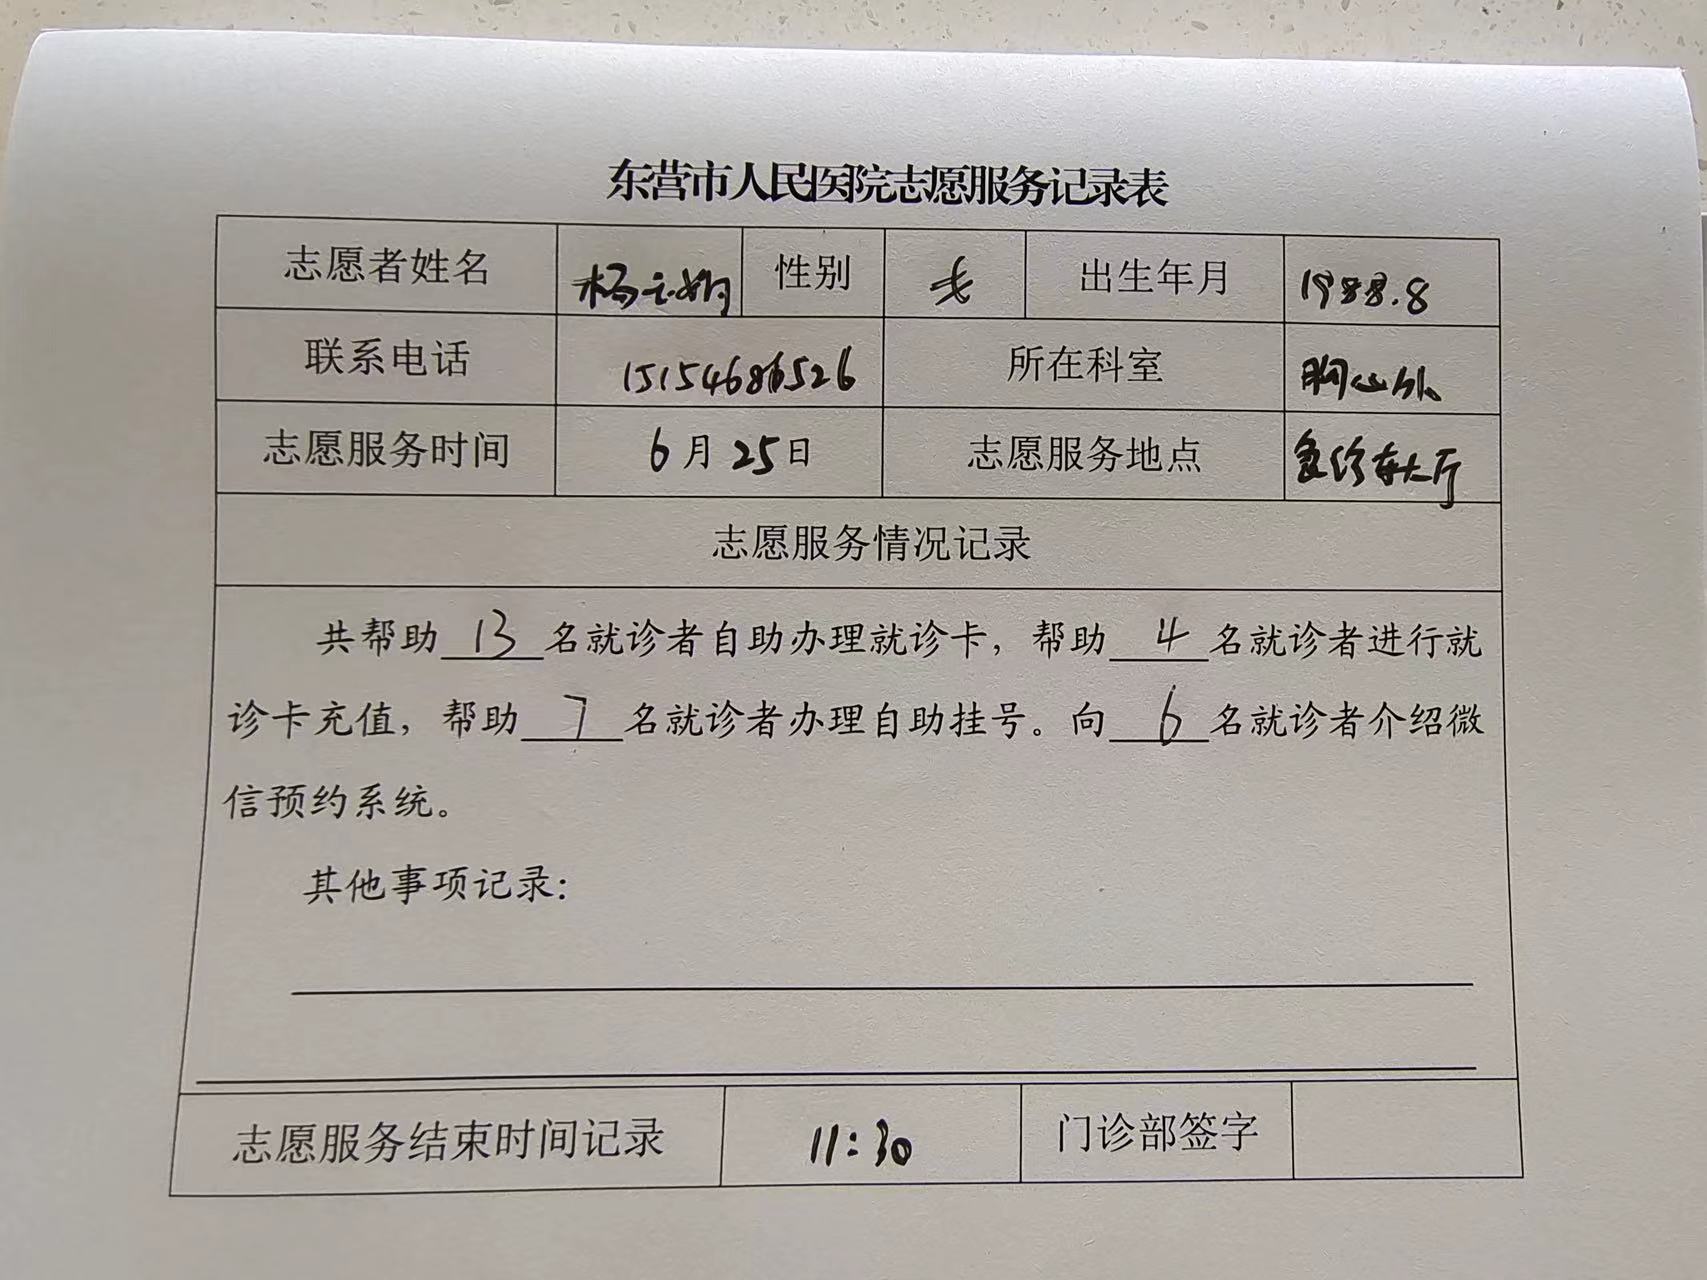 东营市人民医院志愿服务记录表
志愿者姓名 杨 性别 出生年月 1988.8
联系电话 15154686526 所在科室 胸心外
志愿服务时间 6月25日 志愿服务地点 急诊东大厅
志愿服务情况记录
共帮助 13 名就诊者自助办理就诊卡，帮助 4 名就诊者进行就
诊卡充值，帮助 7 名就诊者办理自助挂号。向 6 名就诊者介绍微
信预约系统。
其他事项记录：
志愿服务结束时间记录 11:30 门诊部签字